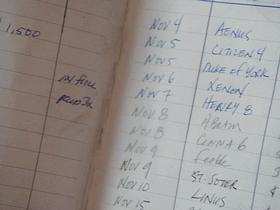 1,500
in full
Nov 4 Aenus
Nov 5 Citizen 4
Nov 5 Duke of York
Nov 6 Xenon
Nov 7 Henry 8
Nov 8 Abram
Nov 8 Cinna 6
Nov 9 Feeble
Nov 9 St. Soter
Nov 10 Linus
Nov 15
$
$